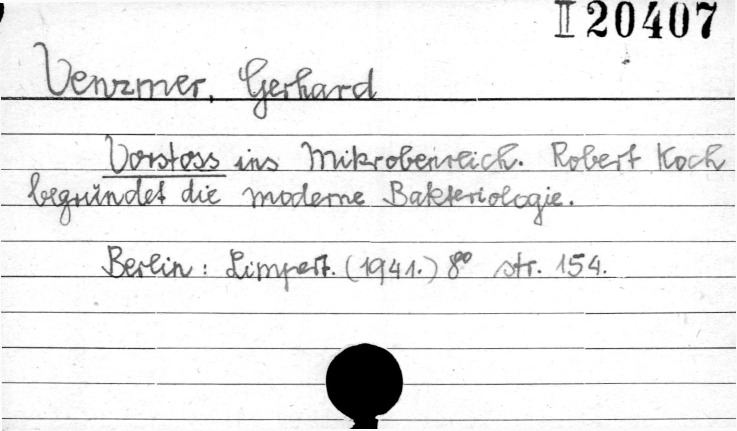 II 20407
Venzmer, Gerhard
Vorstoss ins Mikrobenreich. Robert Koch
begründet die moderne Bakteriologie.
Berlin: Limpert. (1941.) 8° str. 154.